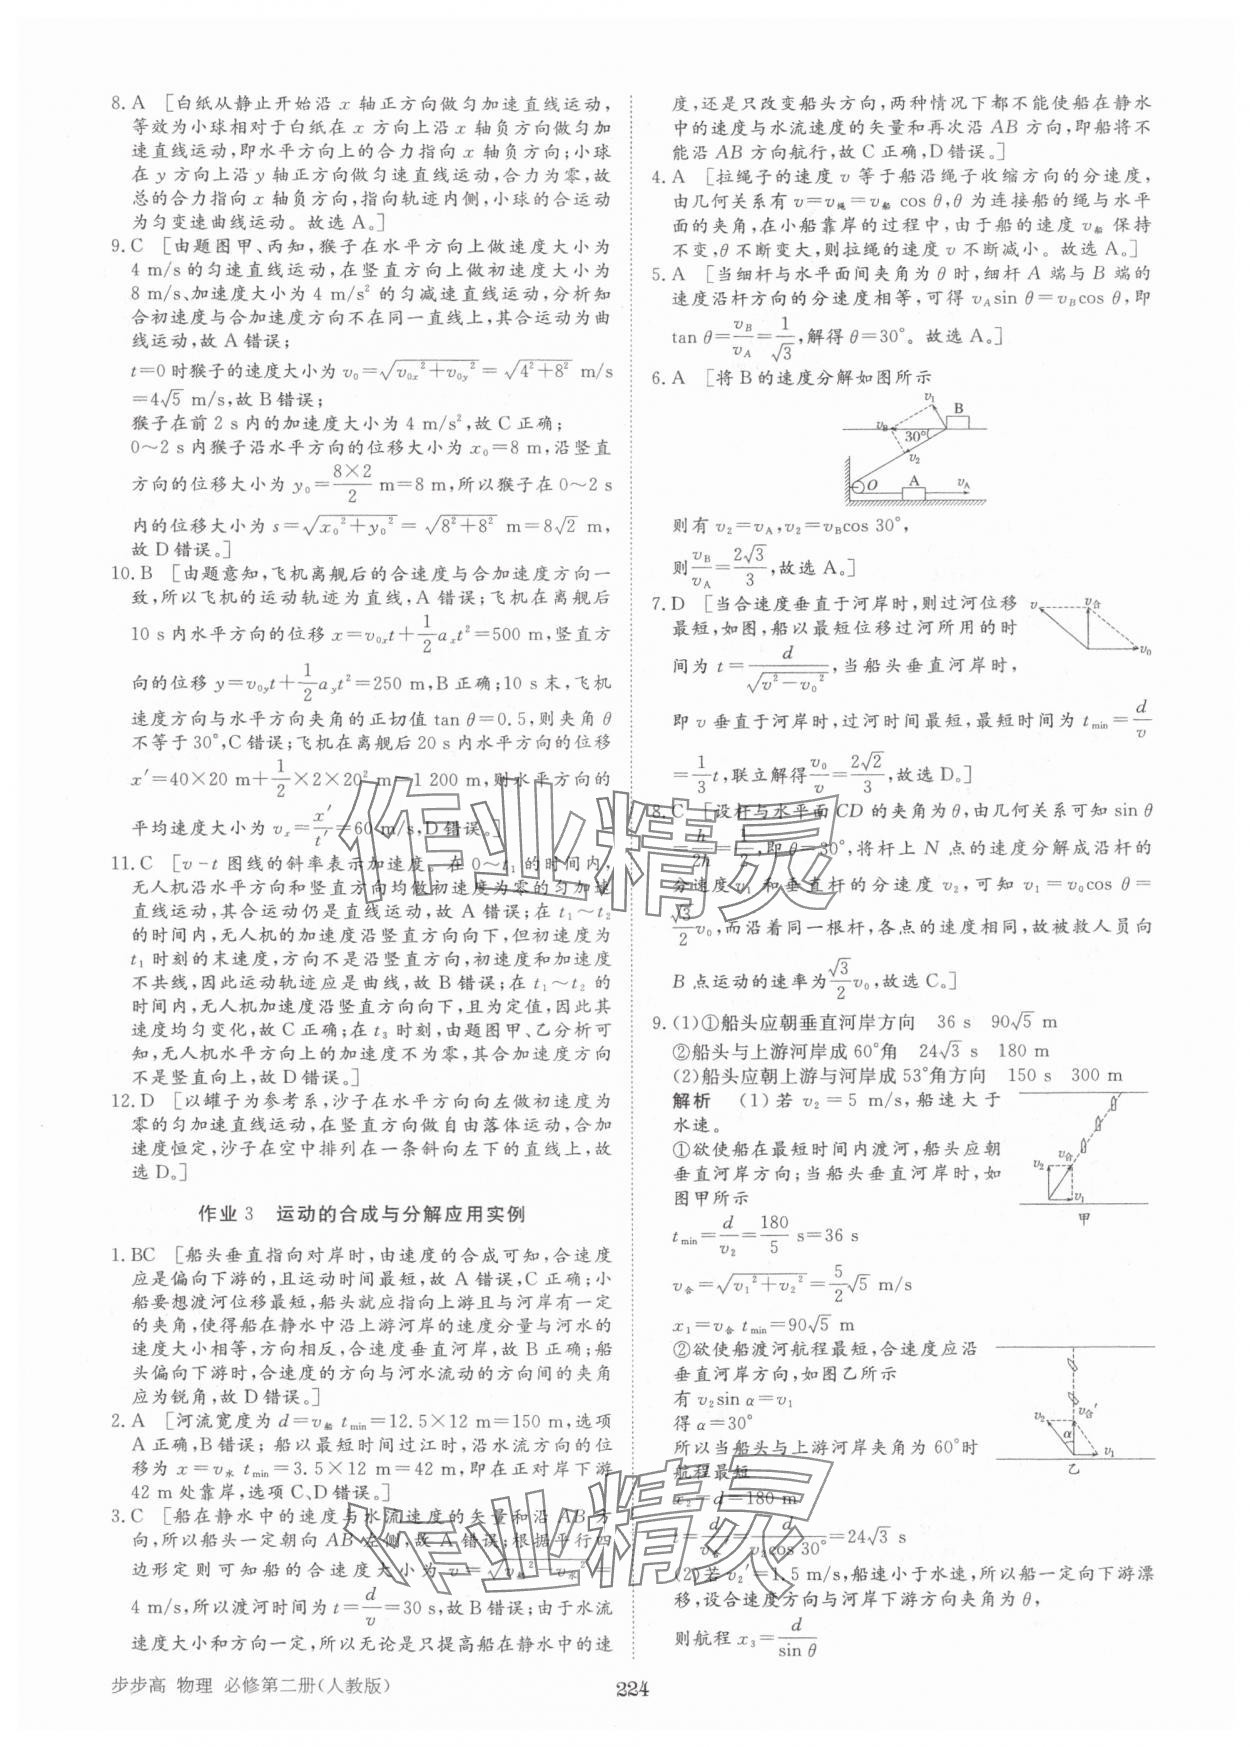 8. A [白纸从静止开始沿 x 轴正方向做匀加速直线运动，
等效为小球相对于白纸在 x 方向上沿 x 轴负方向做匀加
速直线运动，即水平方向上的合力指向 x 轴负方向；小球
在 y 方向上沿 y 轴正方向做匀速直线运动，合力为零，故
总的合力指向 x 轴负方向，指向轨迹内侧，小球的合运动
为匀变速曲线运动。故选 A。]
9. C [由题图甲、丙知，猴子在水平方向上做速度大小为
4 m/s 的匀速直线运动，在竖直方向上做初速度大小为
8 m/s、加速度大小为 4 m/s² 的匀减速直线运动，分析知
合初速度与合加速度方向不在同一直线上，其合运动为曲
线运动，故 A 错误；
t=0 时猴子的速度大小为 v₀=√(v₀ₓ²+v₀y²)=√(4²+8²) m/s
=4√5 m/s，故 B 错误；
猴子在前 2 s 内的加速度大小为 4 m/s²，故 C 正确；
0～2 s 内猴子沿水平方向的位移大小为 x₀=8 m，沿竖直
方向的位移大小为 y₀=8×2/2 m=8 m，所以猴子在 0～2 s
内的位移大小为 s=√(x₀²+y₀²)=√(8²+8²) m=8√2 m，
故 D 错误。]
10. B [由题意知，飞机离舰后的合速度与合加速度方向一
致，所以飞机的运动轨迹为直线，A 错误；飞机在离舰后
10 s 内水平方向的位移 x=v₀ₓt+1/2 aₓt²=500 m，竖直方
向的位移 y=v₀yt+1/2 ayt²=250 m，B 正确；10 s 末，飞机
速度方向与水平方向夹角的正切值 tan θ=0.5，则夹角 θ
不等于 30°，C 错误；飞机在离舰后 20 s 内水平方向的位移
x′=40×20 m+1/2×2×20² m=1 200 m，则水平方向的
平均速度大小为 vₓ=x′/t′=60 m/s，D 错误。]
11. C [v-t 图线的斜率表示加速度。在 0～t₁ 的时间内，
无人机沿水平方向和竖直方向均做初速度为零的匀加速
直线运动，其合运动仍是直线运动，故 A 错误；在 t₁～t₂
的时间内，无人机的加速度沿竖直方向向下，但初速度为
t₁ 时刻的末速度，方向不是沿竖直方向，初速度和加速度
不共线，因此运动轨迹应是曲线，故 B 错误；在 t₁～t₂ 的
时间内，无人机加速度沿竖直方向向下，且为定值，因此其
速度均匀变化，故 C 正确；在 t₃ 时刻，由题图甲、乙分析可
知，无人机水平方向上的加速度不为零，其合加速度方向
不是竖直向上，故 D 错误。]
12. D [以罐子为参考系，沙子在水平方向向左做初速度为
零的匀加速直线运动，在竖直方向做自由落体运动，合加
速度恒定，沙子在空中排列在一条斜向左下的直线上，故
选 D。]
作业 3 运动的合成与分解应用实例
1. BC [船头垂直指向对岸时，由速度的合成可知，合速度
应是偏向下游的，且运动时间最短，故 A 错误，C 正确；小
船要想渡河位移最短，船头就应指向上游且与河岸有一定
的夹角，使得船在静水中沿上游河岸的速度分量与河水的
速度大小相等，方向相反，合速度垂直河岸，故 B 正确；船
头偏向下游时，合速度的方向与河水流动的方向间的夹角
应为锐角，故 D 错误。]
2. A [河流宽度为 d=v船 tmin=12.5×12 m=150 m，选项
A 正确，B 错误；船以最短时间过江时，沿水流方向的位
移为 x=v水 tmin=3.5×12 m=42 m，即在正对岸下游
42 m 处靠岸，选项 C、D 错误。]
3. C [船在静水中的速度与水流速度的矢量和沿 AB 方
向，所以船头一定朝向 AB 左侧，故 A 错误；根据平行四
边形定则可知船的合速度大小为 v=√(v船²-v水²)=
4 m/s，所以渡河时间为 t=d/v=30 s，故 B 错误；由于水流
速度大小和方向一定，所以无论是只提高船在静水中的速
度，还是只改变船头方向，两种情况下都不能使船在静水
中的速度与水流速度的矢量和再次沿 AB 方向，即船将不
能沿 AB 方向航行，故 C 正确，D 错误。]
4. A [拉绳子的速度 v 等于船沿绳子收缩方向的分速度，
由几何关系有 v=v绳=v船 cos θ，θ 为连接船的绳与水平
面的夹角，在小船靠岸的过程中，由于船的速度 v船 保持
不变，θ 不断变大，则拉绳的速度 v 不断减小。故选 A。]
5. A [当细杆与水平面间夹角为 θ 时，细杆 A 端与 B 端的
速度沿杆方向的分速度相等，可得 vAsin θ=vBcos θ，即
tan θ=vB/vA=1/√3，解得 θ=30°。故选 A。]
6. A [将 B 的速度分解如图所示
v₁ B
vB 30°
v₂
O A vA
则有 v₂=vA，v₂=vBcos 30°，
则 vB/vA=2√3/3，故选 A。]
7. D [当合速度垂直于河岸时，则过河位移
最短，如图，船以最短位移过河所用的时
v v合 v₀
间为 t=d/√(v²-v₀²)，当船头垂直河岸时，
即 v 垂直于河岸时，过河时间最短，最短时间为 tmin=d/v
=1/3 t，联立解得 v₀/v=2√2/3，故选 D。]
8. C [设杆与水平面 CD 的夹角为 θ，由几何关系可知 sin θ
=h/2h=1/2，即 θ=30°，将杆上 N 点的速度分解成沿杆的
分速度 v₁ 和垂直杆的分速度 v₂，可知 v₁=v₀cos θ=
√3/2 v₀，而沿着同一根杆，各点的速度相同，故被救人员向
B 点运动的速率为 √3/2 v₀，故选 C。]
9. (1)①船头应朝垂直河岸方向 36 s 90√5 m
②船头与上游河岸成 60°角 24√3 s 180 m
(2)船头应朝上游与河岸成 53°角方向 150 s 300 m
解析 (1)若 v₂=5 m/s，船速大于
水速。
①欲使船在最短时间内渡河，船头应朝
垂直河岸方向；当船头垂直河岸时，如
图甲所示
v₂ v合 v₁
甲
tmin=d/v₂=180/5 s=36 s
v合=√(v₁²+v₂²)=5/2 √5 m/s
x₁=v合 tmin=90√5 m
②欲使船渡河航程最短，合速度应沿
垂直河岸方向，如图乙所示
有 v₂sin α=v₁
得 α=30°
所以当船头与上游河岸夹角为 60°时
航程最短
v₂ v合′ α v₁
乙
x₂=d=180 m
t=d/v合′=d/(v₂cos 30°)=24√3 s
(2)若 v₂′=1.5 m/s，船速小于水速，所以船一定向下游漂
移，设合速度方向与河岸下游方向夹角为 θ，
则航程 x₃=d/sin θ
步步高 物理 必修第二册(人教版)
224
作业精灵
作业精灵